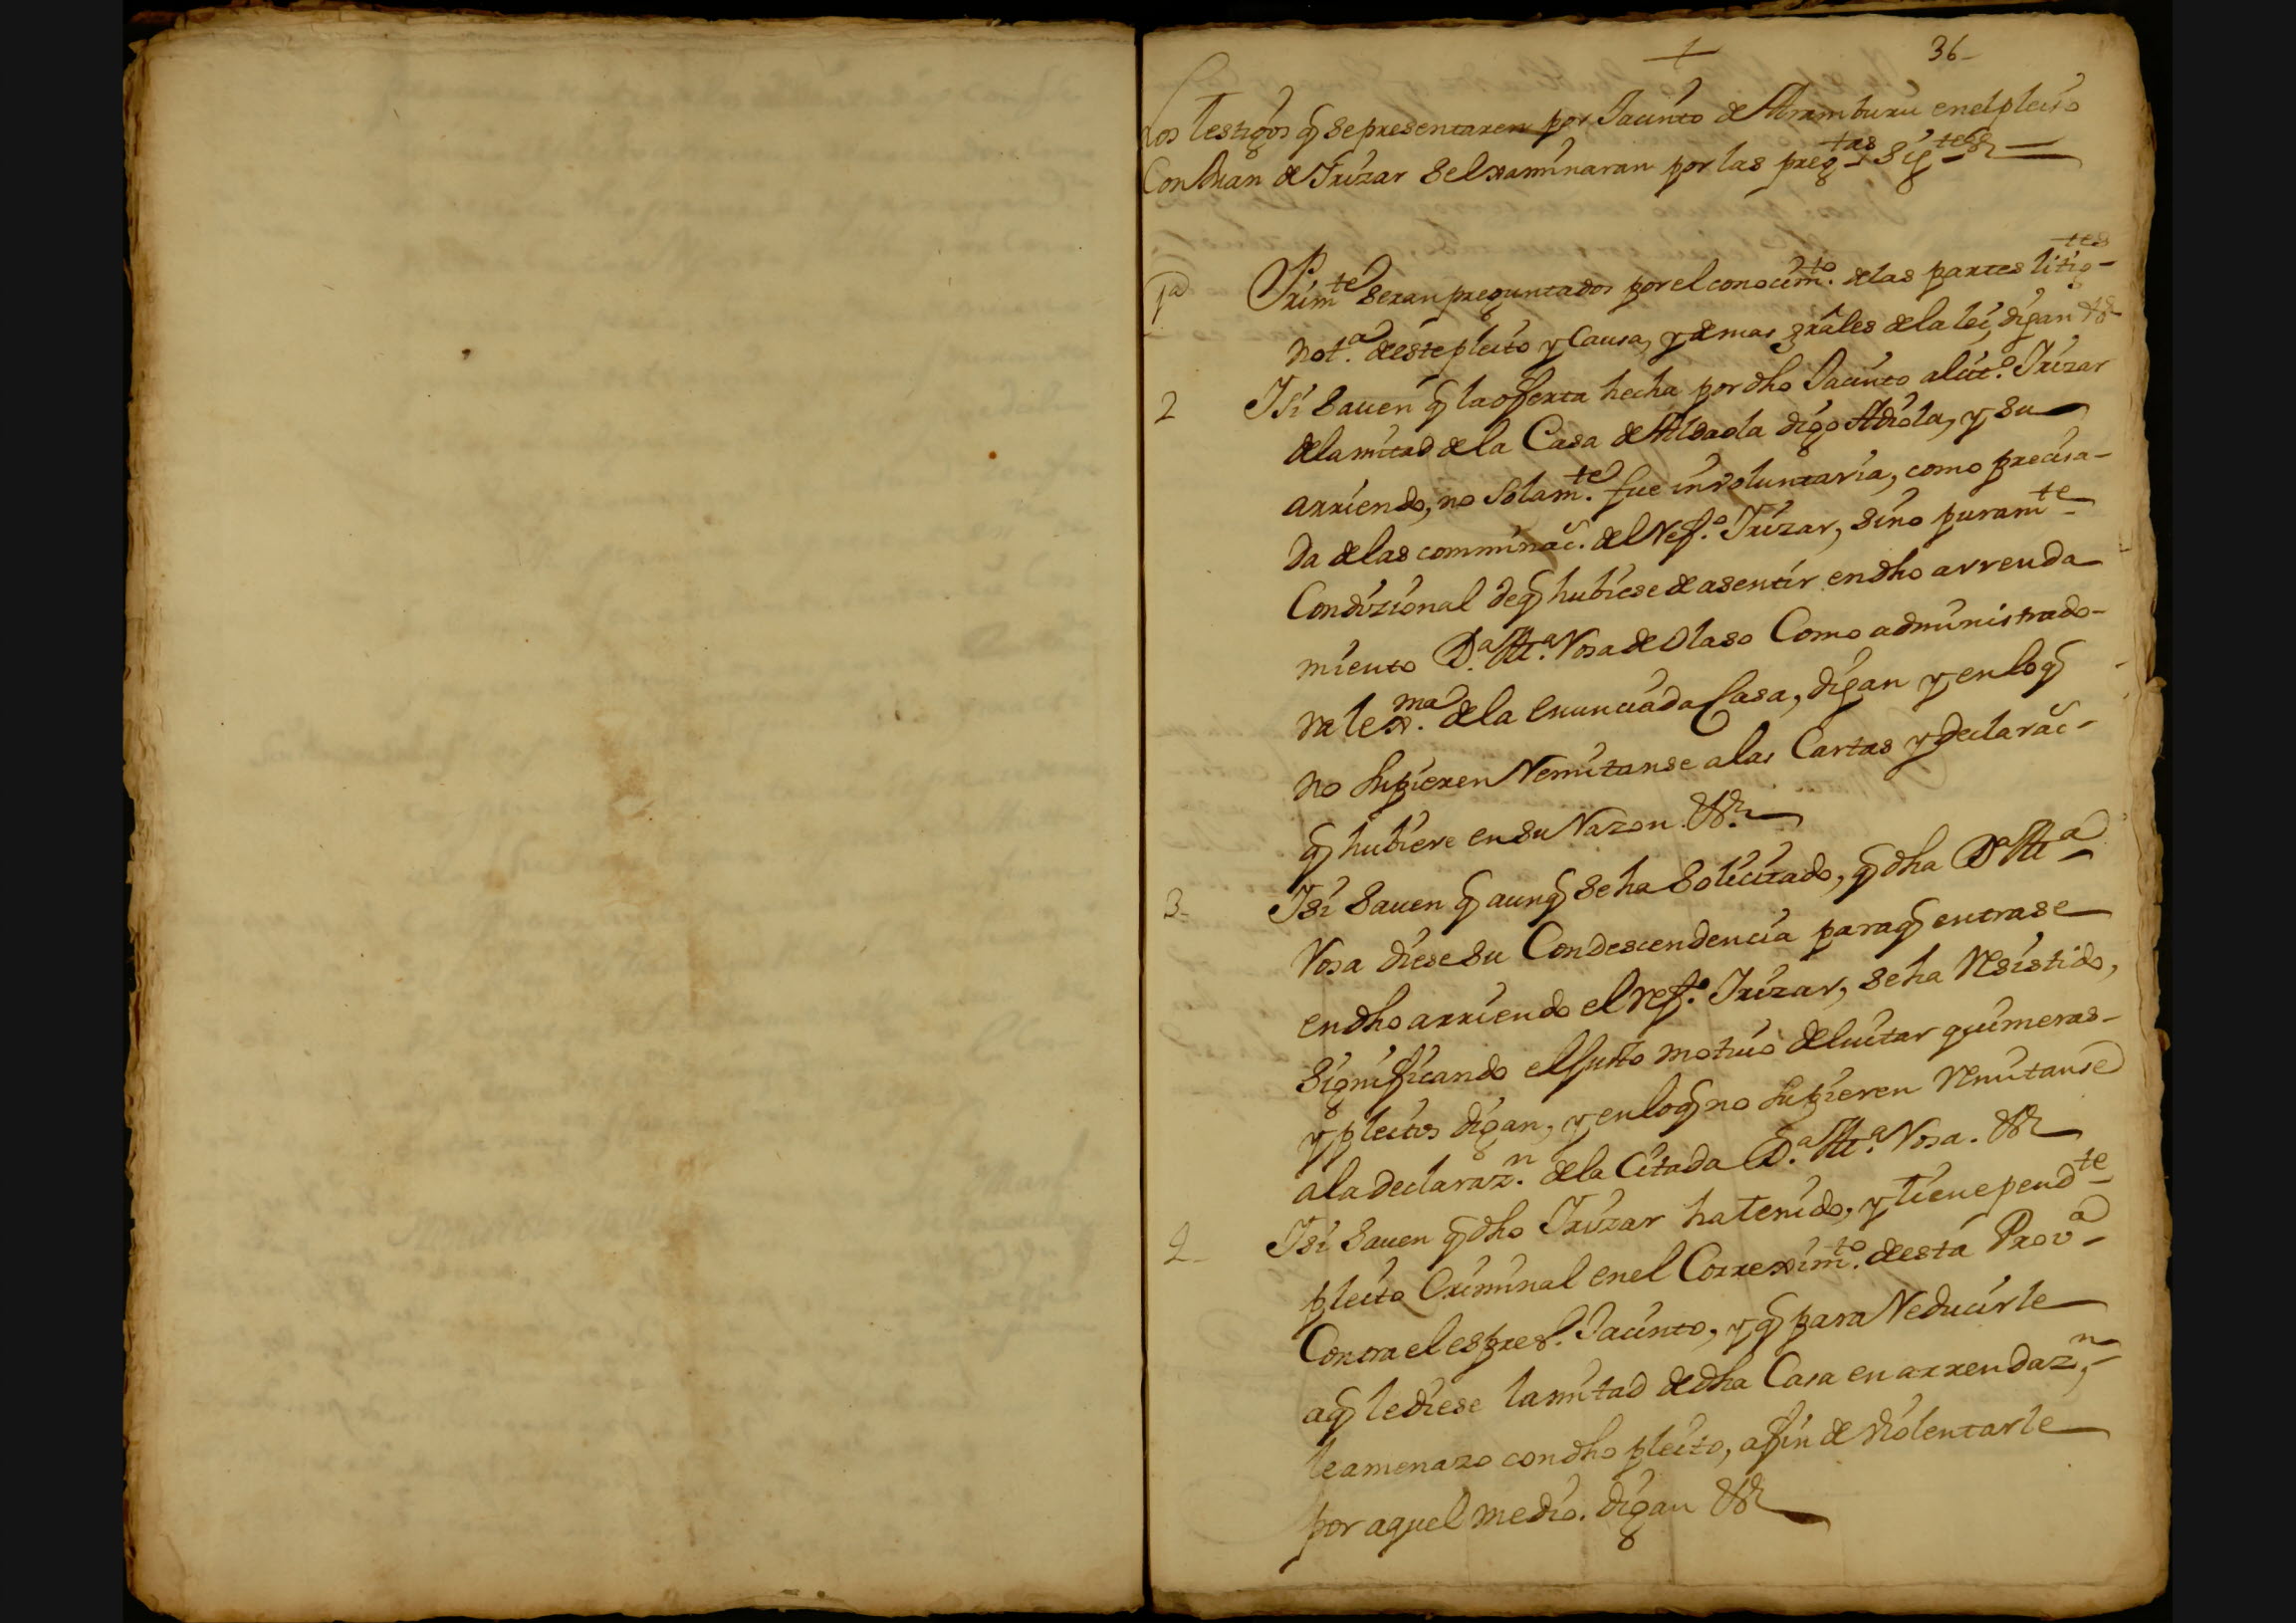 36
Los testigos q se presentaren por Jacinto de Aramburu en el pleito
Con Juan de Irizar se examinaran por las preg.tas sig.tes &
1a Prim.te seran preguntados por el conocim.to de las partes litig.tes
not.a de este pleito y Causa, y demas grâles de la lei, digan &
2 Isi sauen q la oferta hecha por dho Jacinto al cit.o Irizar
de la mitad de la Casa de Aldaola digo Adiola, y su
arriendo, no solam.te fue involuntaria, como precisa-
da de las comminac. del Ref.o Irizar, sino puram.te
Condizional de q hubiese de asentir en dho arrenda
miento D.a M.a Rosa de Olaso Como administrado-
ra lex.ma de la enunciada Casa, digan y en lo q
no supieren Remitanse a las Cartas y declarac-
q hubiere en su Razon. &
3 Isi sauen q aunq se ha solicitado, q dha D.a M.a
Rosa diese su Condescendencia para q entrase
en dho arriendo el ref.o Irizar, se ha resistido,
significando el justo motivo de evitar quimeras-
y pleitos digan, y en lo q no supieren remitanse
a la declaraz.n de la Citada D.a M.a Rosa. &
4 Isi sauen q dho Irizar ha tenido, y tiene pend.te
pleito Criminal en el Correxim.to de esta Prov.a
Contra el espres.o Jacinto, y q para Reducirle
a q le diese la mitad de dha Casa en arrendaz.n,
le amenazo con dho pleito, a fin de violentarle
por aquel medio. digan &